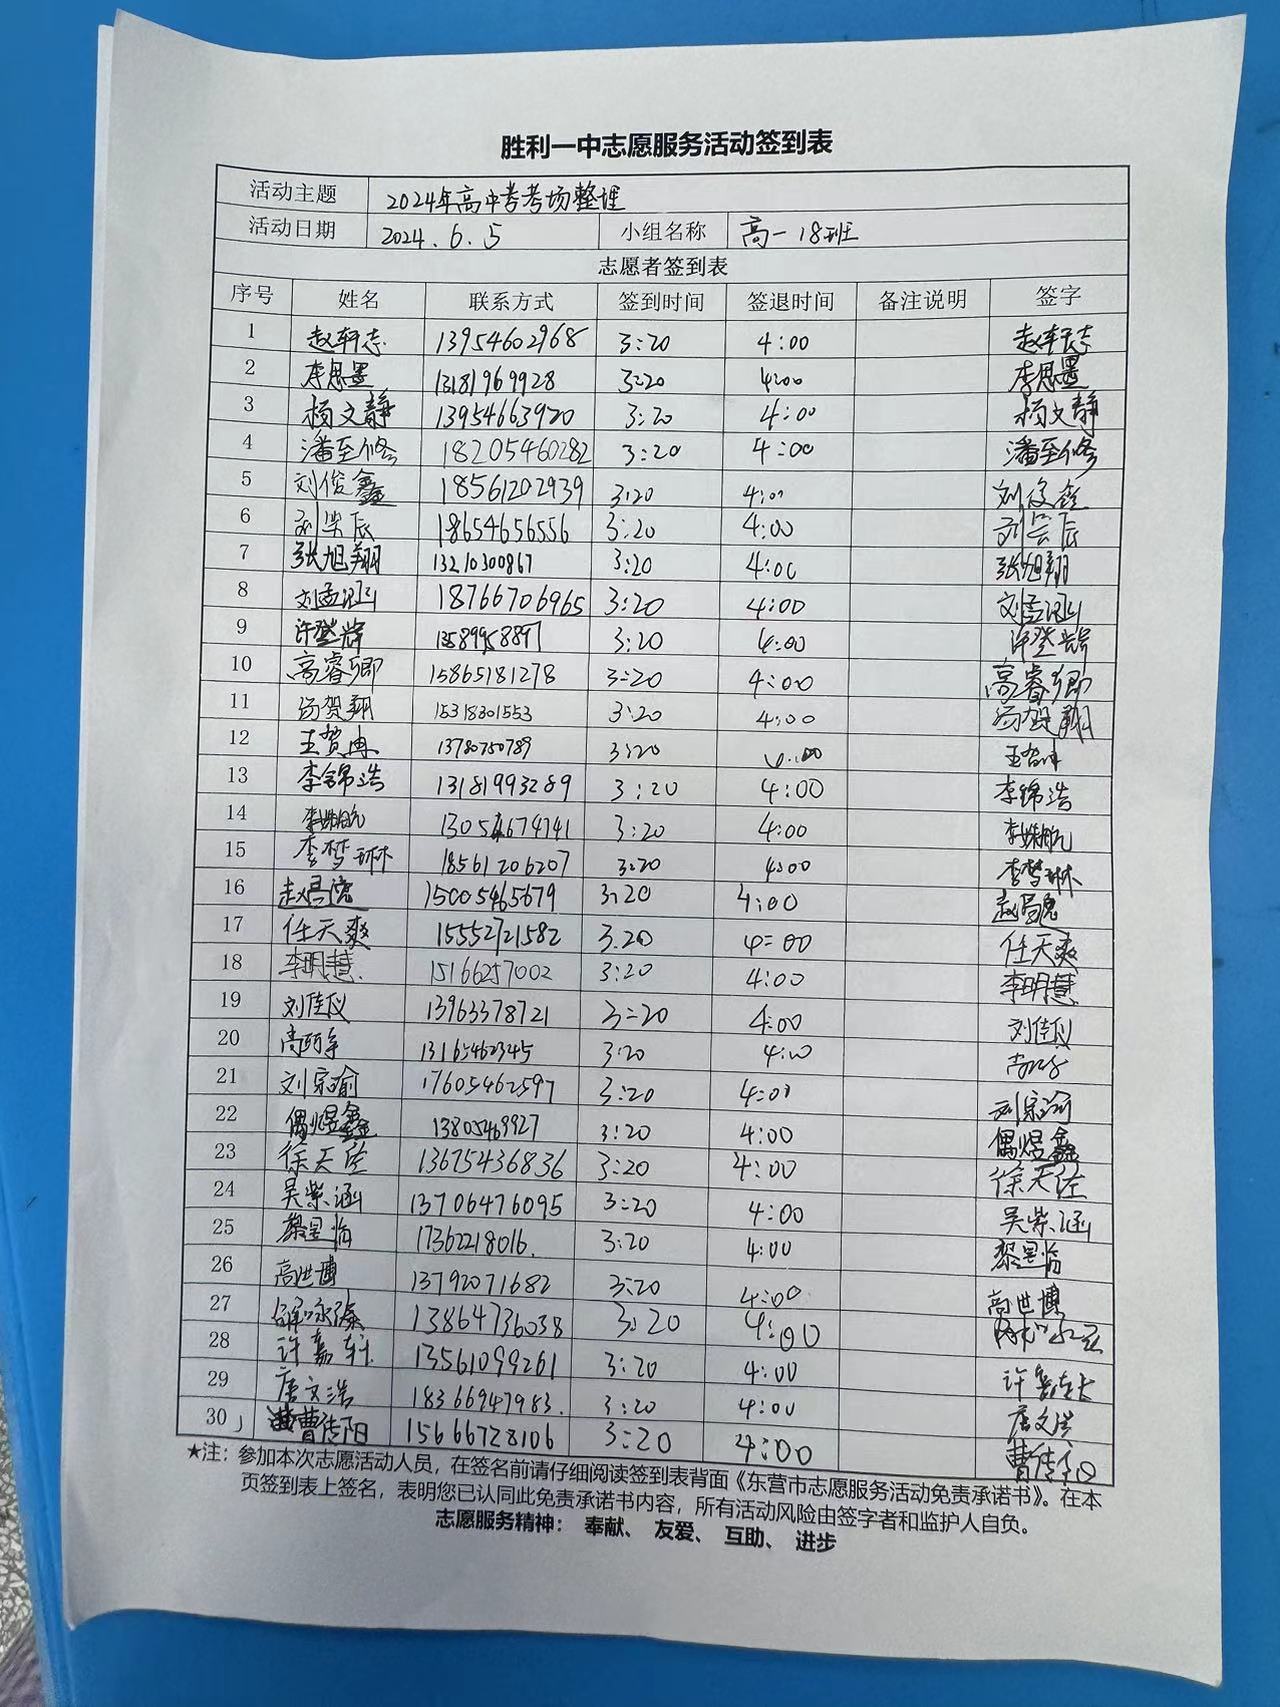 胜利一中志愿服务活动签到表
活动主题 2024年高中考考场整理
活动日期 2024.6.5 小组名称 高一18班
志愿者签到表
序号 姓名 联系方式 签到时间 签退时间 备注说明 签字
1 赵轩志 13954602968 3:20 4:00 赵轩志
2 李思墨 13181969928 3:20 4:00 李思墨
3 杨文静 13954663920 3:20 4:00 杨文静
4 潘至修 18205460282 3:20 4:00 潘至修
5 刘俊鑫 18561202939 3:20 4:00 刘俊鑫
6 18654656556 3:20 4:00
7 张旭翔 13210300867 3:20 4:00 张旭翔
8 刘孟涵 18766706965 3:20 4:00 刘孟涵
9 许登辉 13589958897 3:20 4:00 许登辉
10 高睿卿 15865181278 3:20 4:00 高睿卿
11 汤贺翔 15318301553 3:20 4:00 汤贺翔
12 王贺冉 13780750789 3:20 4:00
13 李锦浩 13181993289 3:20 4:00 李锦浩
14 李姝帆 13054674741 3:20 4:00 李姝帆
15 李梦琳 18561206207 3:20 4:00 李梦琳
16 15005465679 3:20 4:00
17 任天爽 15552721582 3.20 4=00 任天爽
18 李明慧 15166257002 3:20 4:00 李明慧
19 刘佳仪 13963378721 3:20 4:00 刘佳仪
20 13165462345 3:20 4:00
21 刘宗瑜 17605462597 3:20 4:00 刘宗瑜
22 偶煜鑫 13805469927 3:20 4:00 偶煜鑫
23 徐天佐 13675436836 3:20 4:00 徐天佐
24 吴紫涵 13706476095 3:20 4:00 吴紫涵
25 黎昱怡 17362218016. 3:20 4:00 黎昱怡
26 高世博 13792071682 3:20 4:00 高世博
27 13864736038 3:20 4:00
28 许嘉轩 13561099261 3:20 4:00 许嘉轩
29 唐文浩 18366947983. 3:20 4:00 唐文浩
30 曹传阳 15666728106 3:20 4:00 曹传阳
★注：参加本次志愿活动人员，在签名前请仔细阅读签到表背面《东营市志愿服务活动免责承诺书》。在本
页签到表上签名，表明您已认同此免责承诺书内容，所有活动风险由签字者和监护人自负。
志愿服务精神： 奉献、 友爱、 互助、 进步